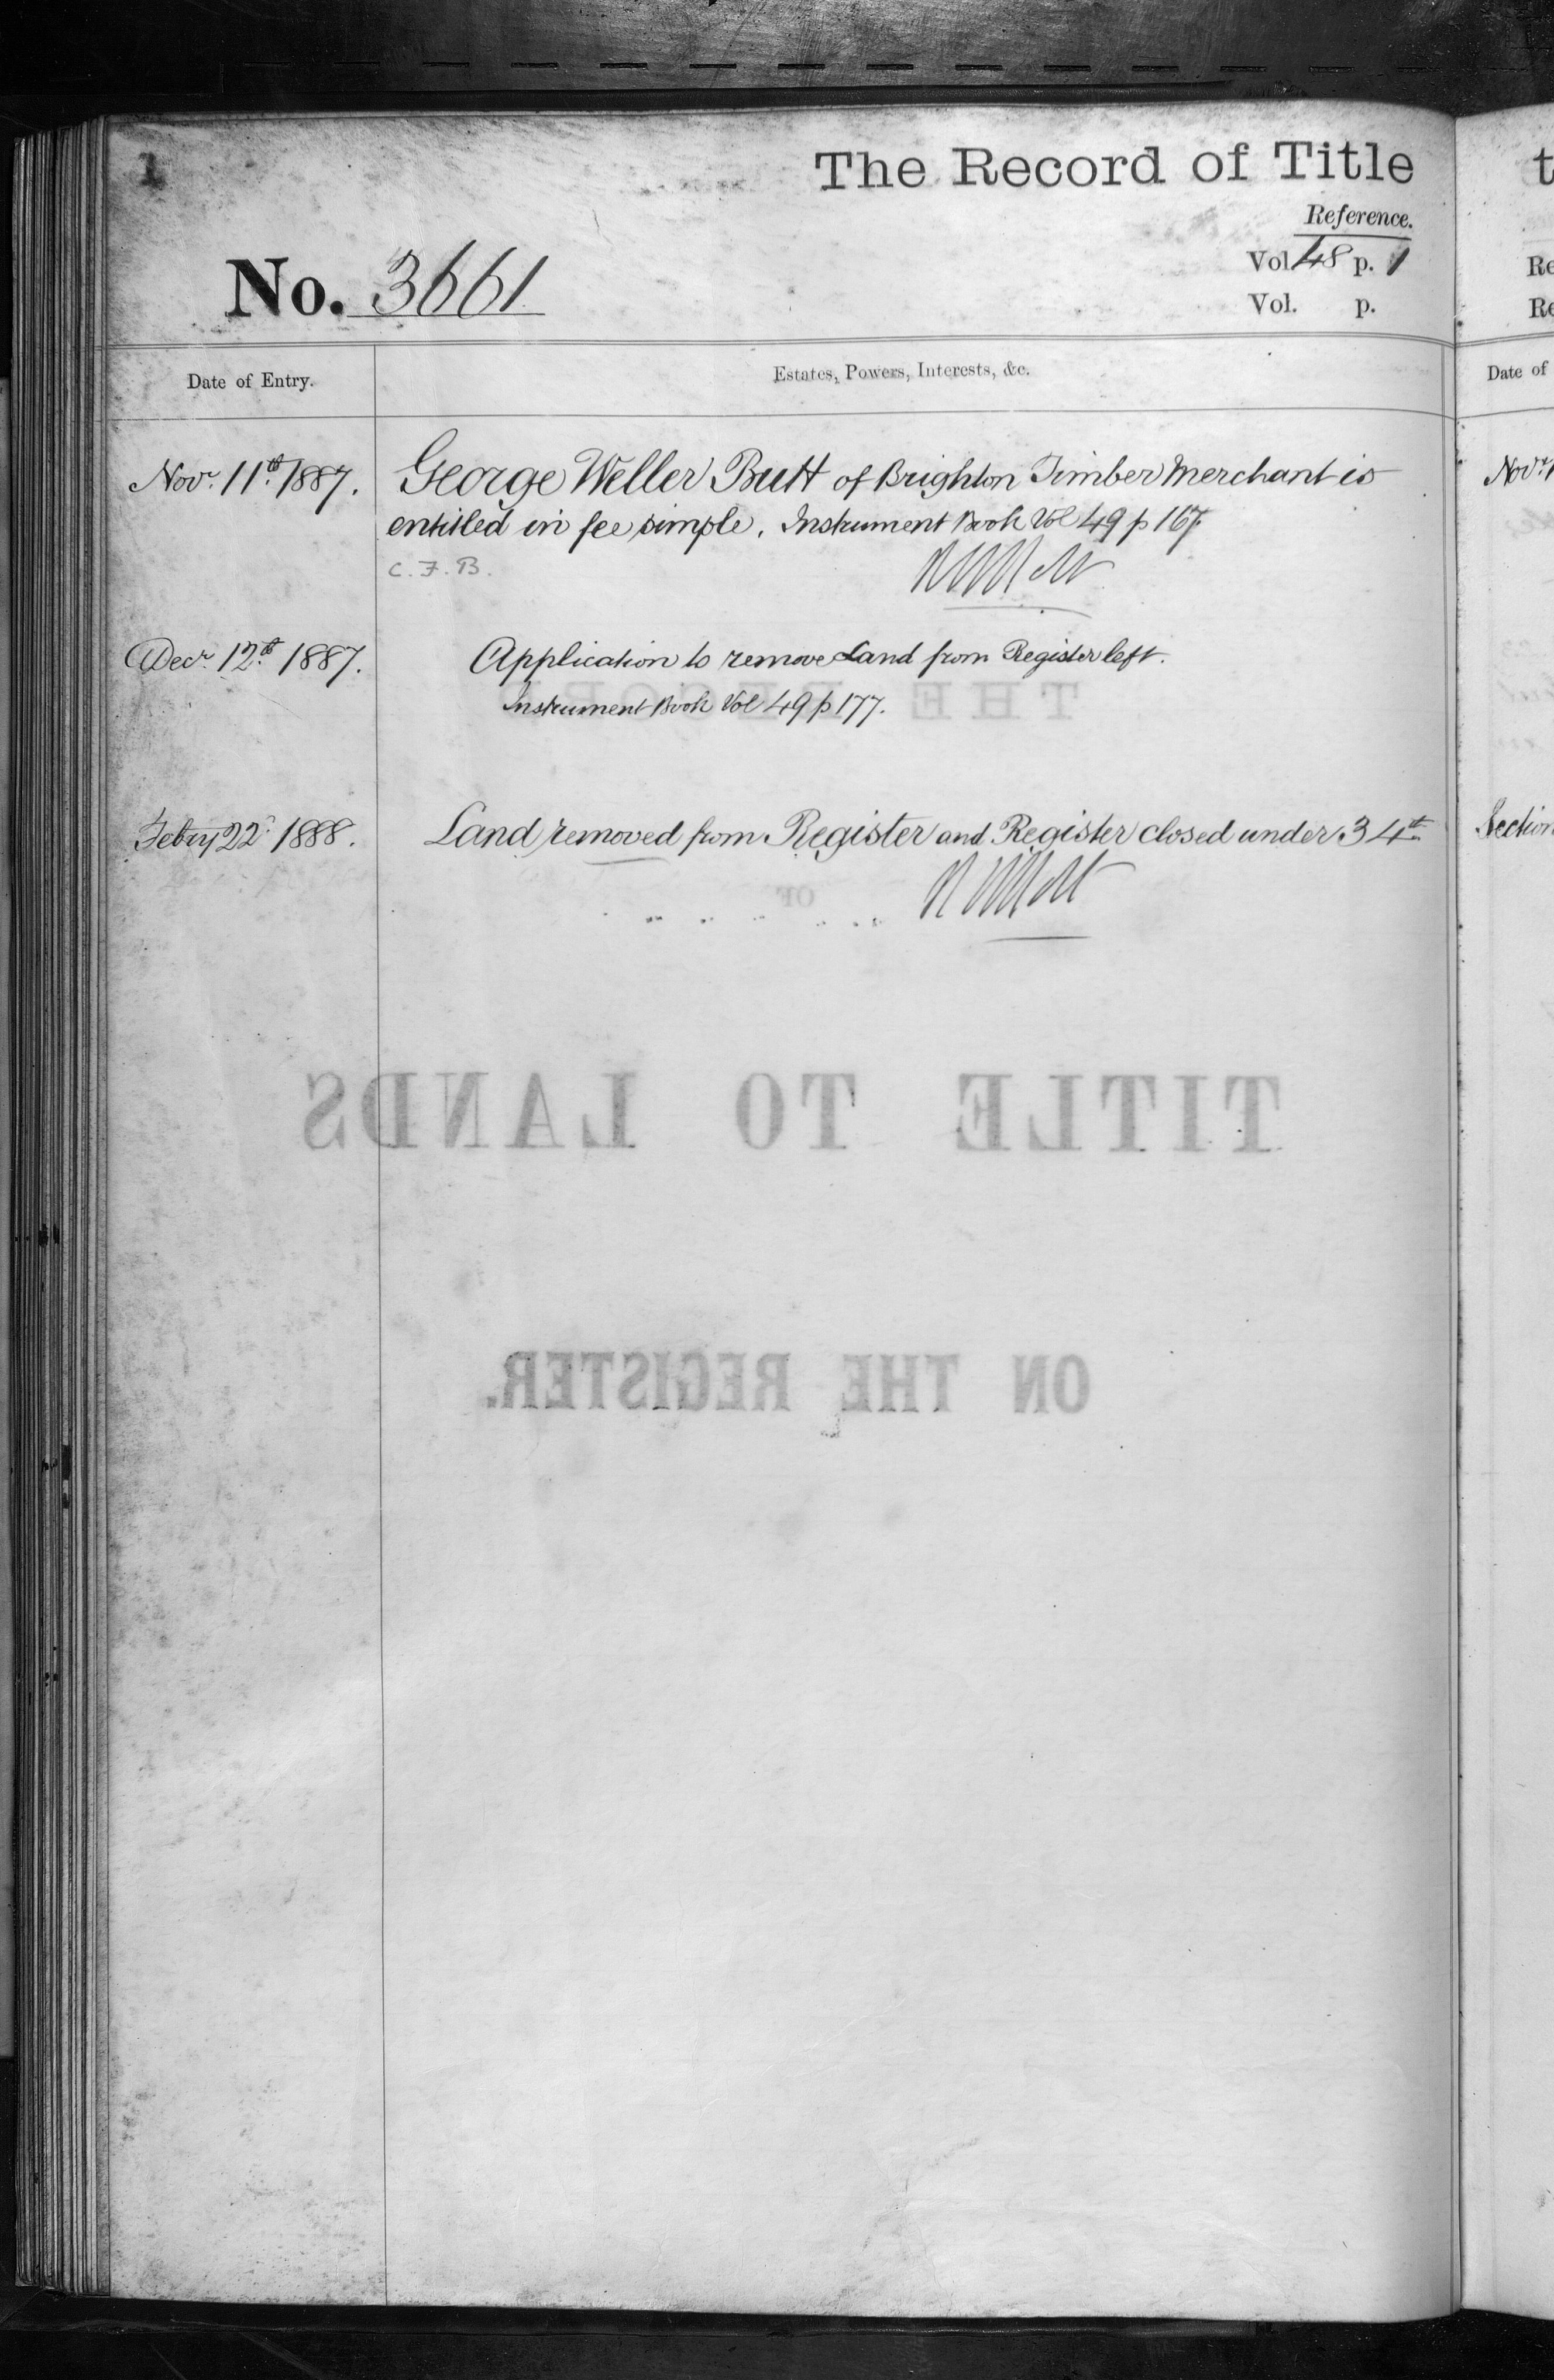 1
The Record of Title
Reference.
No. 3661
Vol. 48 p. 1
Vol. p.
Date of Entry.
Estates, Powers, Interests, &c.
Novr. 11th 1887.
George Weller Butt of Brighton Timber Merchant is
entitled in fee simple. Instrument Book Vol 49 p 167.
C. F. B.
Decr. 12th 1887.
Application to remove Land from Register left.
Instrument Book Vol 49 p 177.
Febry 22d 1888.
Land removed from Register and Register closed under 34th
Section
THE RECORD
OF
TITLE TO LANDS
ON THE REGISTER.
Date of
Novr.